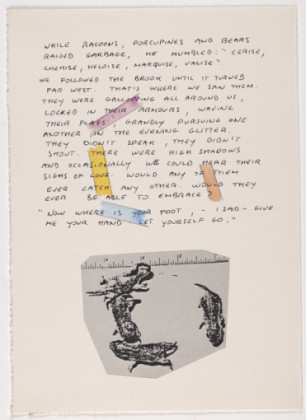 WHILE RACOONS, PORCUPINES AND BEARS
RAIDED GARBAGE, HE MUMBLED: "CERISE,
CHEMISE, HELOISE, MARQUISE, VALISE".
WE FOLLOWED THE BROOK UNTIL IT TURNED
FAR WEST. THAT'S WHERE WE SAW THEM.
THEY WERE GALLOPING ALL AROUND US,
LOCKED IN THEIR ARMOURS, WAVING
THEIR FLAGS, GRANDLY PURSUING ONE
ANOTHER IN THE EVENING GLITTER.
THEY DIDN'T SPEAK, THEY DIDN'T
SHOUT. THERE WERE HIGH SHADOWS
AND OCCASIONALLY WE COULD HEAR THEIR
SIGHS OF LOVE. WOULD ANY OF THEM
EVER CATCH ANY OTHER. WOULD THEY
EVER BE ABLE TO EMBRACE?
"NOW WHERE IS YOUR FOOT, - I SAID - GIVE
ME YOUR HAND LET YOURSELF GO."